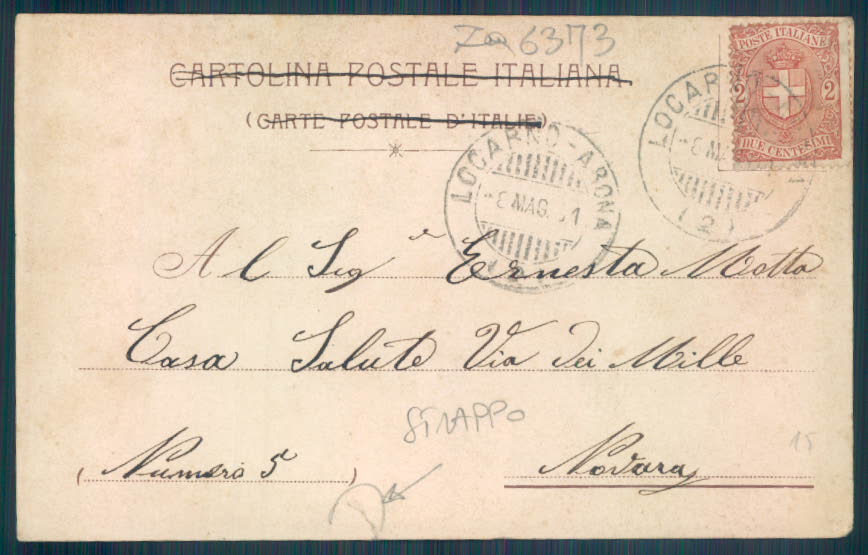 6373
POSTE ITALIANE
2 2
DUE CENTESIMI
CARTOLINA POSTALE ITALIANA
(CARTE POSTALE D'ITALIE)
LOCARNO-ARONA
-8 MAG. 01
(2)
LOCARNO
-8 MA
(2)
Al Sig.ª Ernesta Motta
Casa Salute Via dei Mille
STRAPPO
15
(Numero 5)
Novara